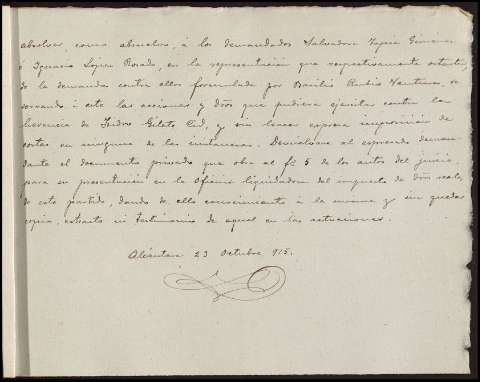 absolver, como absuelvo, á los demandados Salvadora Tapia Gimenez
é Ignacio López Rosado, en la representación que respectivamente ostentan,
de la demanda contra ellos formulada por Basilio Rubio Venturas, re-
servando á este las acciones y dros que pudiera ejercitar contra la
herencia de Isidro Gileto Cid, y sin hacer expresa imposición de
costas en ninguna de las instancias. Devuelvase al expresado deman-
dante el documento privado que obra al fº 5 de los autos del juicio,
para su presentación en la Oficina liquidadora del impuesto de dros reales
de este partido, dando de ello conocimiento á la misma y sin quedar
copia, extracto ni testimonio de aquel en las actuaciones.
Alcántara 23 Octubre 915.